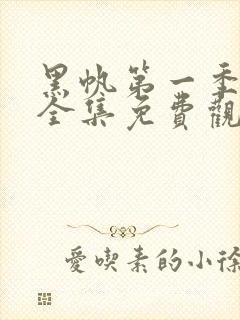 黑帆第一季
全集免費觀
愛喫素的小徐